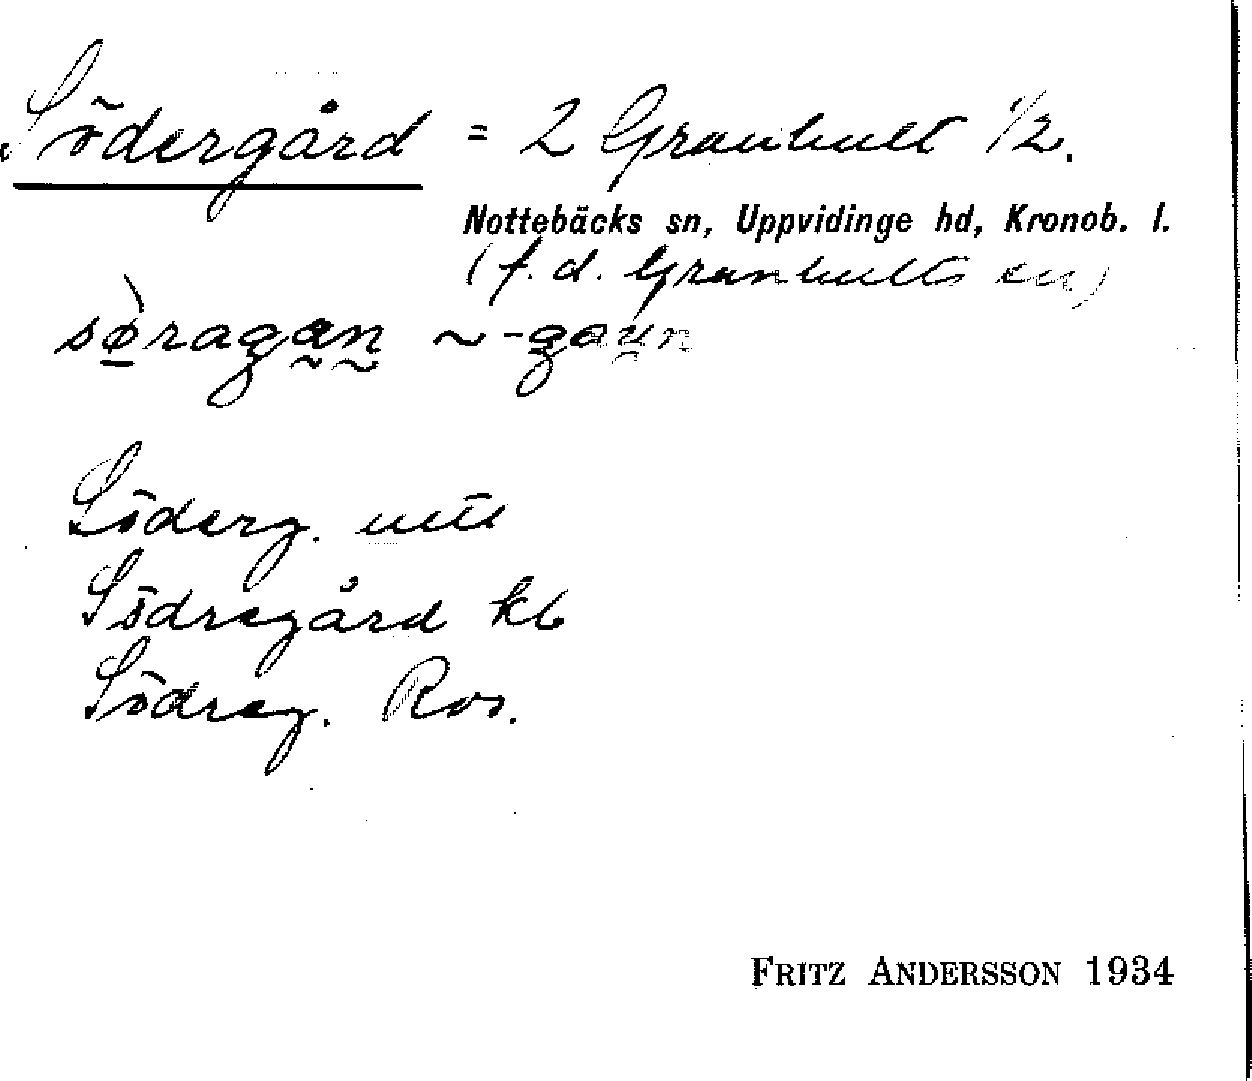 Södergård = 2 Granhult 1/2.
Nottebäcks sn, Uppvidinge hd, Kronob. l.
(f. d. Granhults sn)
sø̀ragan ~ -gaun
Söderg.
Södregård kb
Södreg. Ros.
FRITZ ANDERSSON 1934